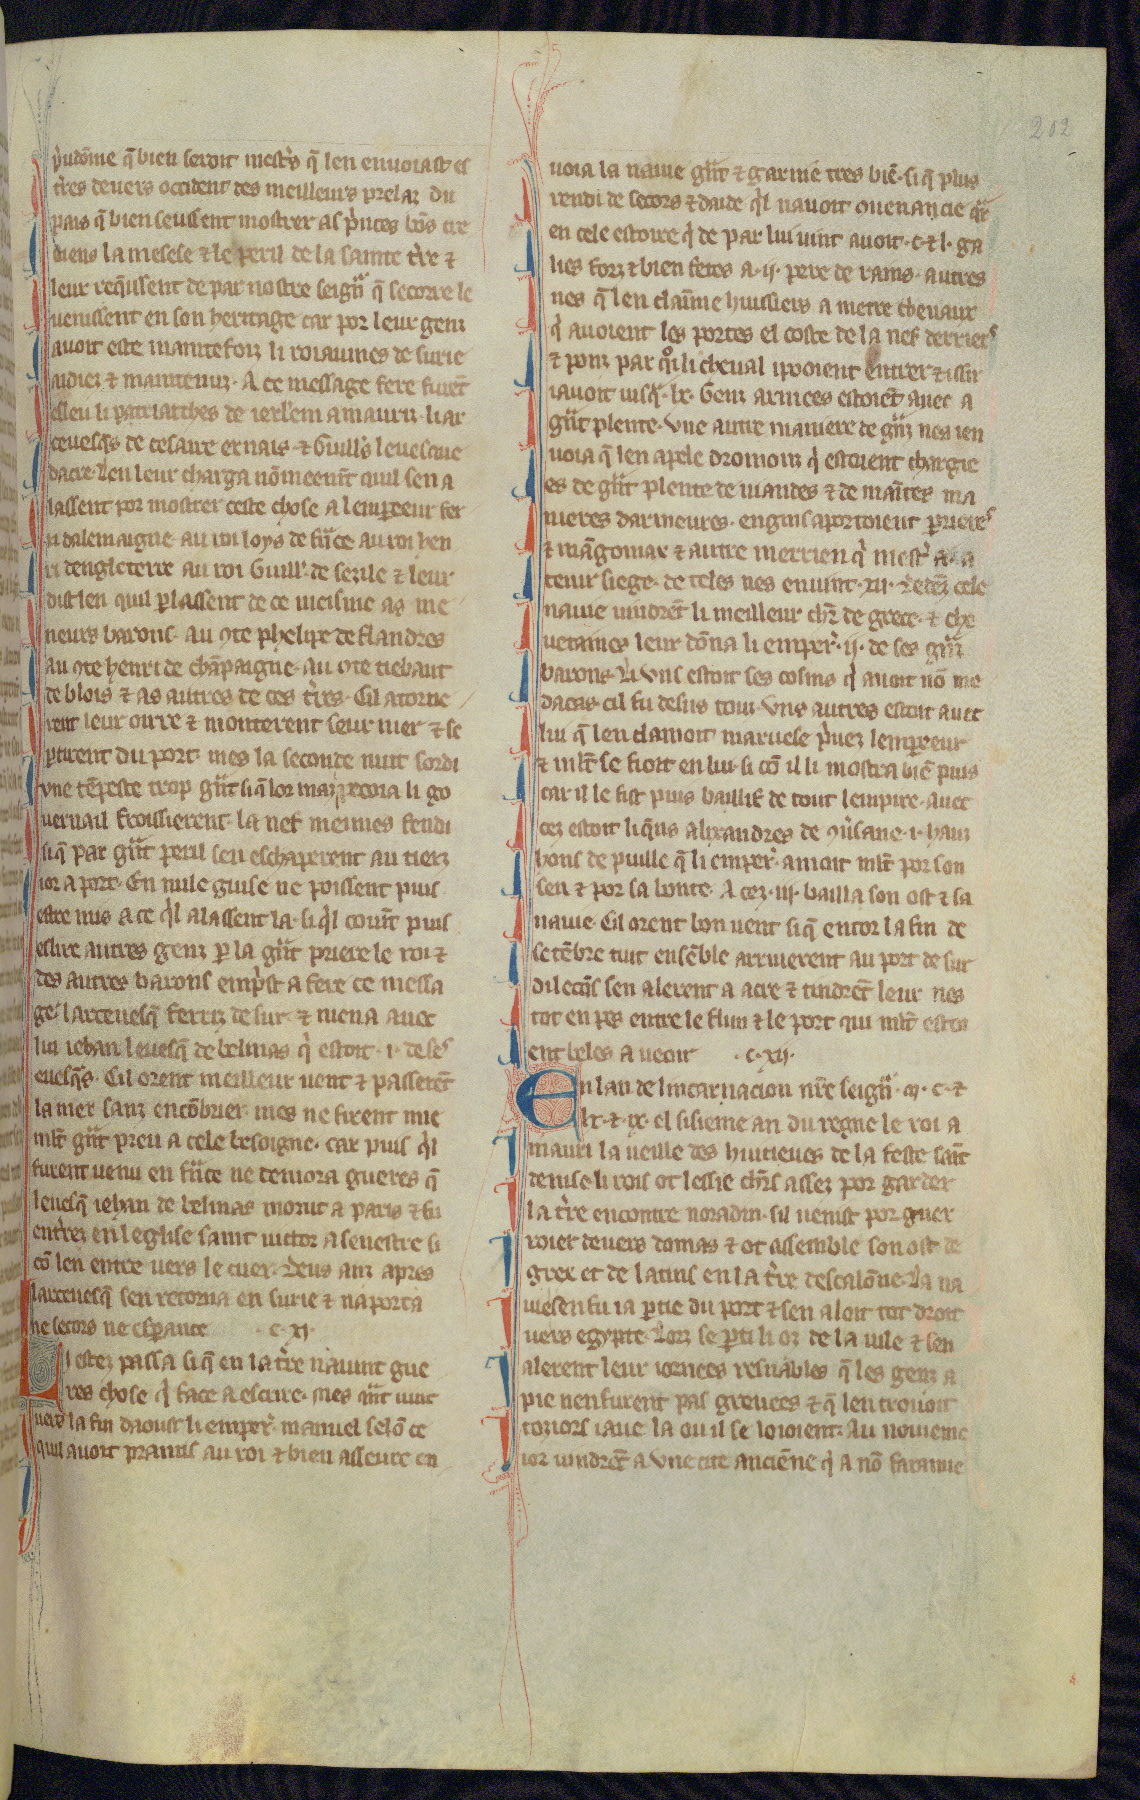 p̾udōme q̄ bien seroit mest̾s q̄ len enuoiast es
t̾res deuers occident des meilleurs prelaz du
pais q̄ bien seussent mostrer as p̾nces bōs cre
diens la mesese ⁊ le peril de la sainte t̾re ⁊
leur req̄issent de par nostre seign̄ q̄ secorre le
uenissent en son heritage car por leur genz
auoit este maintefoiz li roiaumes de surie
aidiez ⁊ maintenuz. A ce message fere furēt
esleu li patriarches de ierl'em amauriz. li ar
ceuesq̄s de cesaire ernais. ⁊ Guill's leuesque
dacre. Len leur charga nōmeemt̄ quil sen a
lassent por mostrer ceste chose a lempereeur fer
ri dalemaigne. au roi loys de fn̄ce au roi hen
ri dengleterre au roi Guill'. de sezile ⁊ leur
dist len quil p̱lassent de ce meisme as me
neurs barons. au ꝯte phelipe de flandres
au ꝯte henri de chāpaigne. au ꝯte tiebaut
de blois ⁊ as autres de ces t̾res. Cil atorne
rent leur oirre ⁊ monterent seur mer ⁊ se
p̱tirent du port. mes la seconde nuit sordi
vne tēpeste trop gn̄t si q̄ lor maz peceoia li go
uernail froissierent. la nef meimes fendi
si q̄ par gn̄t peril sen eschaperent au tierz
ior a port. En nule guise ne poissent puis
estre mis a ce q̾l alassent la. si q̾l couīt puis
eslire autres genz p̱ la gn̄t priere le roi ⁊
des autres barons emp̾st a fere ce messa
ge. larceuesq̄ ferriz de sur. ⁊ mena auec
lui iehan leuesq̄ de belinas q̾ estoit .i. de ses
euesq̄s. Cil orent meilleur uent ⁊ passerēt
la mer sanz encōbrier. mes ne firent mie
ml̄t gn̄t preu a cele besoigne. car puis q̾l
furent uenu en fn̄ce ne demora gueres q̄
leuesq̄ iehan de belinas morut a paris ⁊ fu
ent̾rez en leglise saint uictor a senestre si
cō len entre uers le cuer. Deus anz apres
larceuesq̄ sen retorna en surie ⁊ naporta
ne secors ne esp̱ance .c.xj.
Li estez passa si q̄ en la t̾re nauint gue
res chose q̾ face a escrire. Mes qn̄t uint
uers la fin daoust li emper̾. manuel selō ce
quil auoit pramis au roi ⁊ bien asseure en
uoia la nauie gn̄t ⁊ garnie tres biē. si q̄ plus
rendi de secors ⁊ daide q̾l nauoit ꝯuenancie q̄r
en cele estoire q̾ de par lui uint auoit .c. ⁊ l. ga
lies forz ⁊ bien fetes a .ij. pere de rains. autres
nes q̄ len claīme huissiers a metre cheuaux
q̾ auoient les portes el coste de la nef derriers
⁊ ponz par quoi li cheual i pooient entrer ⁊ issir
i auoit iusq̾ .lx. Genz armees estoiēt auec a
gn̄t plente. Vne autre maniere de gn̄z nes i en
uoia q̄ len apele dromonz q̾ estoient chargie
es de gn̄t plente de uiandes ⁊ de maītes ma
nieres darmeures. engins aportoient perieres
⁊ māgoniax ⁊ autre merrien q̾ mest̾ a a
tenir siege. de teles nes en uint .xij. Dedēz cele
nauie uindrēt li meilleur chr̄ de grece. ⁊ che
uetaines leur dōna li emper̾. ij. de ses gn̄z
barons. Li vns estoit ses cosins q̾ auoit nō me
dacas. cil fu desus touz. vns autres estoit auec
lui q̄ len clamoit maruese p̾uez lempereeur
⁊ ml̄t se fioit en lui. si cō il li mostra biē puis
car il le fist puis baillif de tout lempire. Auec
cez estoit li q̄ns alixandres de ꝯu̾sane .i. hauz
hons de puille q̄ li emper̾. amoit ml̄t por son
sen ⁊ por sa bonte. A cez .iij. bailla son ost ⁊ sa
nauie. Cil orent bon uent si q̄ entor la fin de
setēbre tuit ensēble arriuerent au port de sur
Dilecq̄s sen alerent a acre ⁊ tindrēt leur nes
tot en pes entre le flun ⁊ le port qui ml̄t estoi
ent beles a ueoir .c.xij.
En lan de lincarnacion nr̄e seign̄. m. c. ⁊
lx. ⁊ ix. el sisieme an du regne le roi a
mauri la ueille des huitieues de la feste sāit
denise. li rois ot lessie chr̄s assez por garder
la t̾re encontre noradin. sil uenist por guer
roier deuers domas ⁊ ot assemble son ost de
grex et de latins en la t̾re descalōne. La na
uie sen fu ia p̱tie du port ⁊ sen aloit tot droit
uers egypte. Lorz se p̱ti li oz de la uile ⁊ sen
alerent leur iornees resnables q̄ les genz a
pie nen furent pas greuees ⁊ q̄ len trouoit
toziors iaue la ou il se loioient. Au nouieme
ior uindrēt a vne cite anciēne q̾ a nō faramie